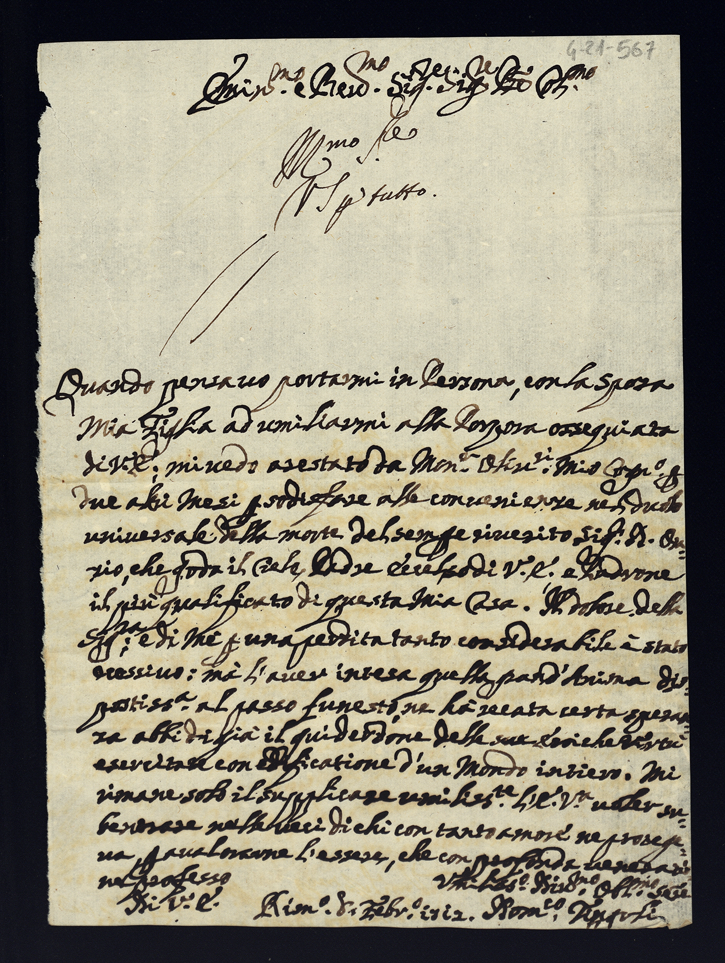 G-21-567
Emin.mo e Rev.mo Sig.re Sig.re P.ne Col.mo
V S p tutto.
Quando pensavo portarmi in Persona, con la Sposa
Mia Figlia ad umiliarmi alla Porpora ossequiata
di V. E.; mi vedo arestato da Mon.r mio
due altri Mesi p sodisfare alle convenienze nel duolo
universale della morte del sempre riverito Sig.r D.
rio, che goda il Cielo, Padre Ecc di V. E. e Padrone
il più qualificato di questa Mia Casa. Il dolore della
Sposa, e di Me p una perdita tanto considerabile è stato
ecessivo: mà l'aver intesa quella grand'Anima dis-
postiss.a al passo funesto, ne hà recata certa speran-
za abbi di già il guiderdone delle sue eroiche virtù
esercitate con edificatione d'un Mondo intiero. Mi
rimane solo il supplicare umilis.te l'E. V.ra voler su-
bentrare nelle veci di chi con tanto amore ne protege-
va, p avalorarne l'essere, che con profonda venerazio-
ne professo
Di V. E.
Umiliss.o Div.mo Obl.mo Ser.e
Rim.o 8 Febr.o 1712. Dom.co